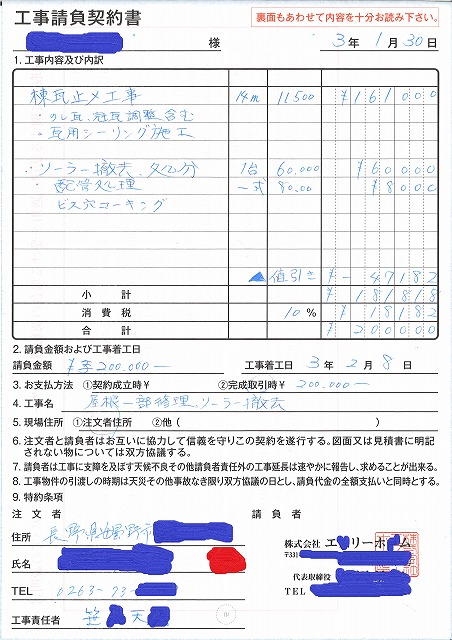 工事請負契約書
裏面もあわせて内容を十分お読み下さい。
様 3年 1月 30日
1. 工事内容及び内訳
棟瓦止メ工事 14m 11500 ¥161000
・のし瓦、冠瓦調整含む
・瓦用シーリング施工
・ソーラー撤去、処分 1台 60.000 ¥60000
・配管処理 一式 80.00 ¥8000
ビス穴コーキング
▲値引き ¥-47182
小計 ¥181818
消費税 10% ¥18182
合計 ¥200000
2. 請負金額および工事着工日
請負金額 ¥200.000— 工事着工日 3年 2月 8日
3. お支払方法 ①契約成立時¥ ②完成取引時¥ 200.000—
4. 工事名 屋根一部修理、ソーラー撤去
5. 現場住所 ①注文者住所 ②他( )
6. 注文者と請負者はお互いに協力して信義を守りこの契約を遂行する。図面又は見積書に明記
されない物については双方協議する。
7. 請負者は工事に支障を及ぼす天候不良その他請負者責任外の工事延長は速やかに報告し、求めることが出来る。
8. 工事物件の引渡しの時期は天災その他事故なき限り双方協議の日とし、請負代金の全額支払いと同時とする。
9. 特約条項
注文者 請負者
住所 長野県 野市
株式会社 エ リーホ ム
〒331
氏名
代表取締役
TEL 0263-73-
TEL
工事責任者 笹 天